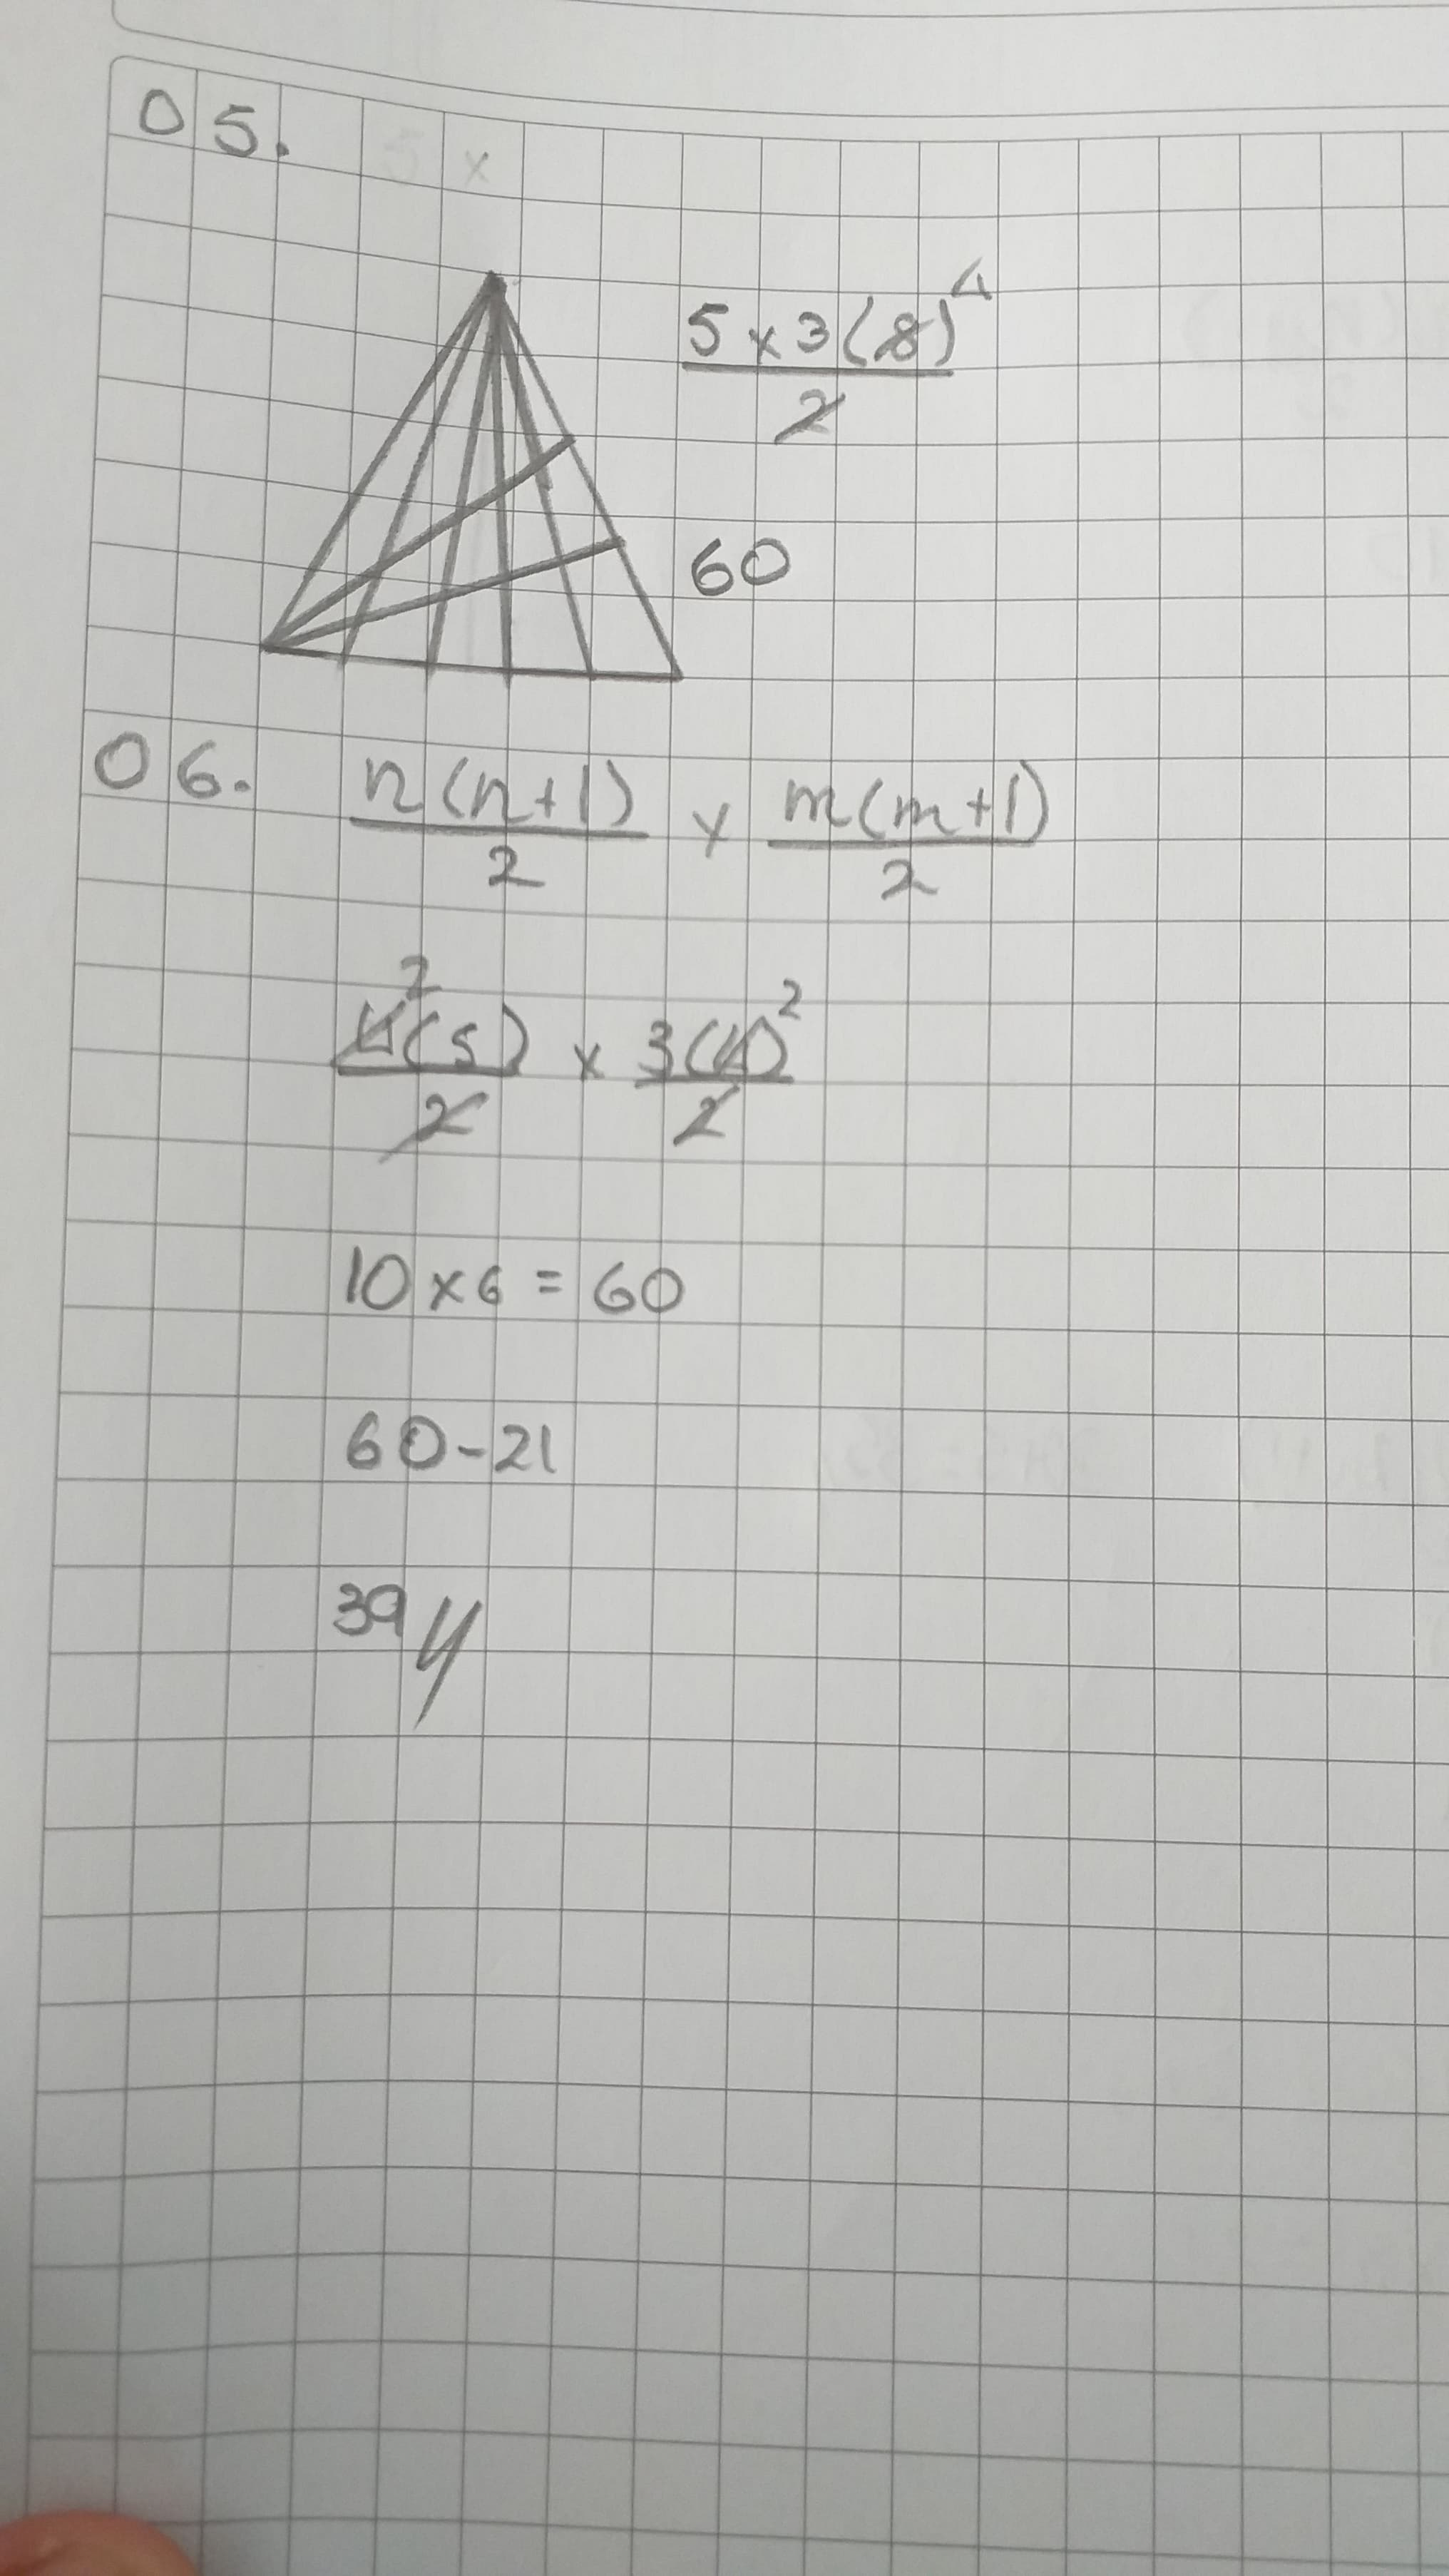 05.
5 x 3(8) 4
2
60
06. n(n+1) x m(m+1)
2 2
2 2
4(5) x 3(4)
2 2
10 x 6 = 60
60-21
39 //